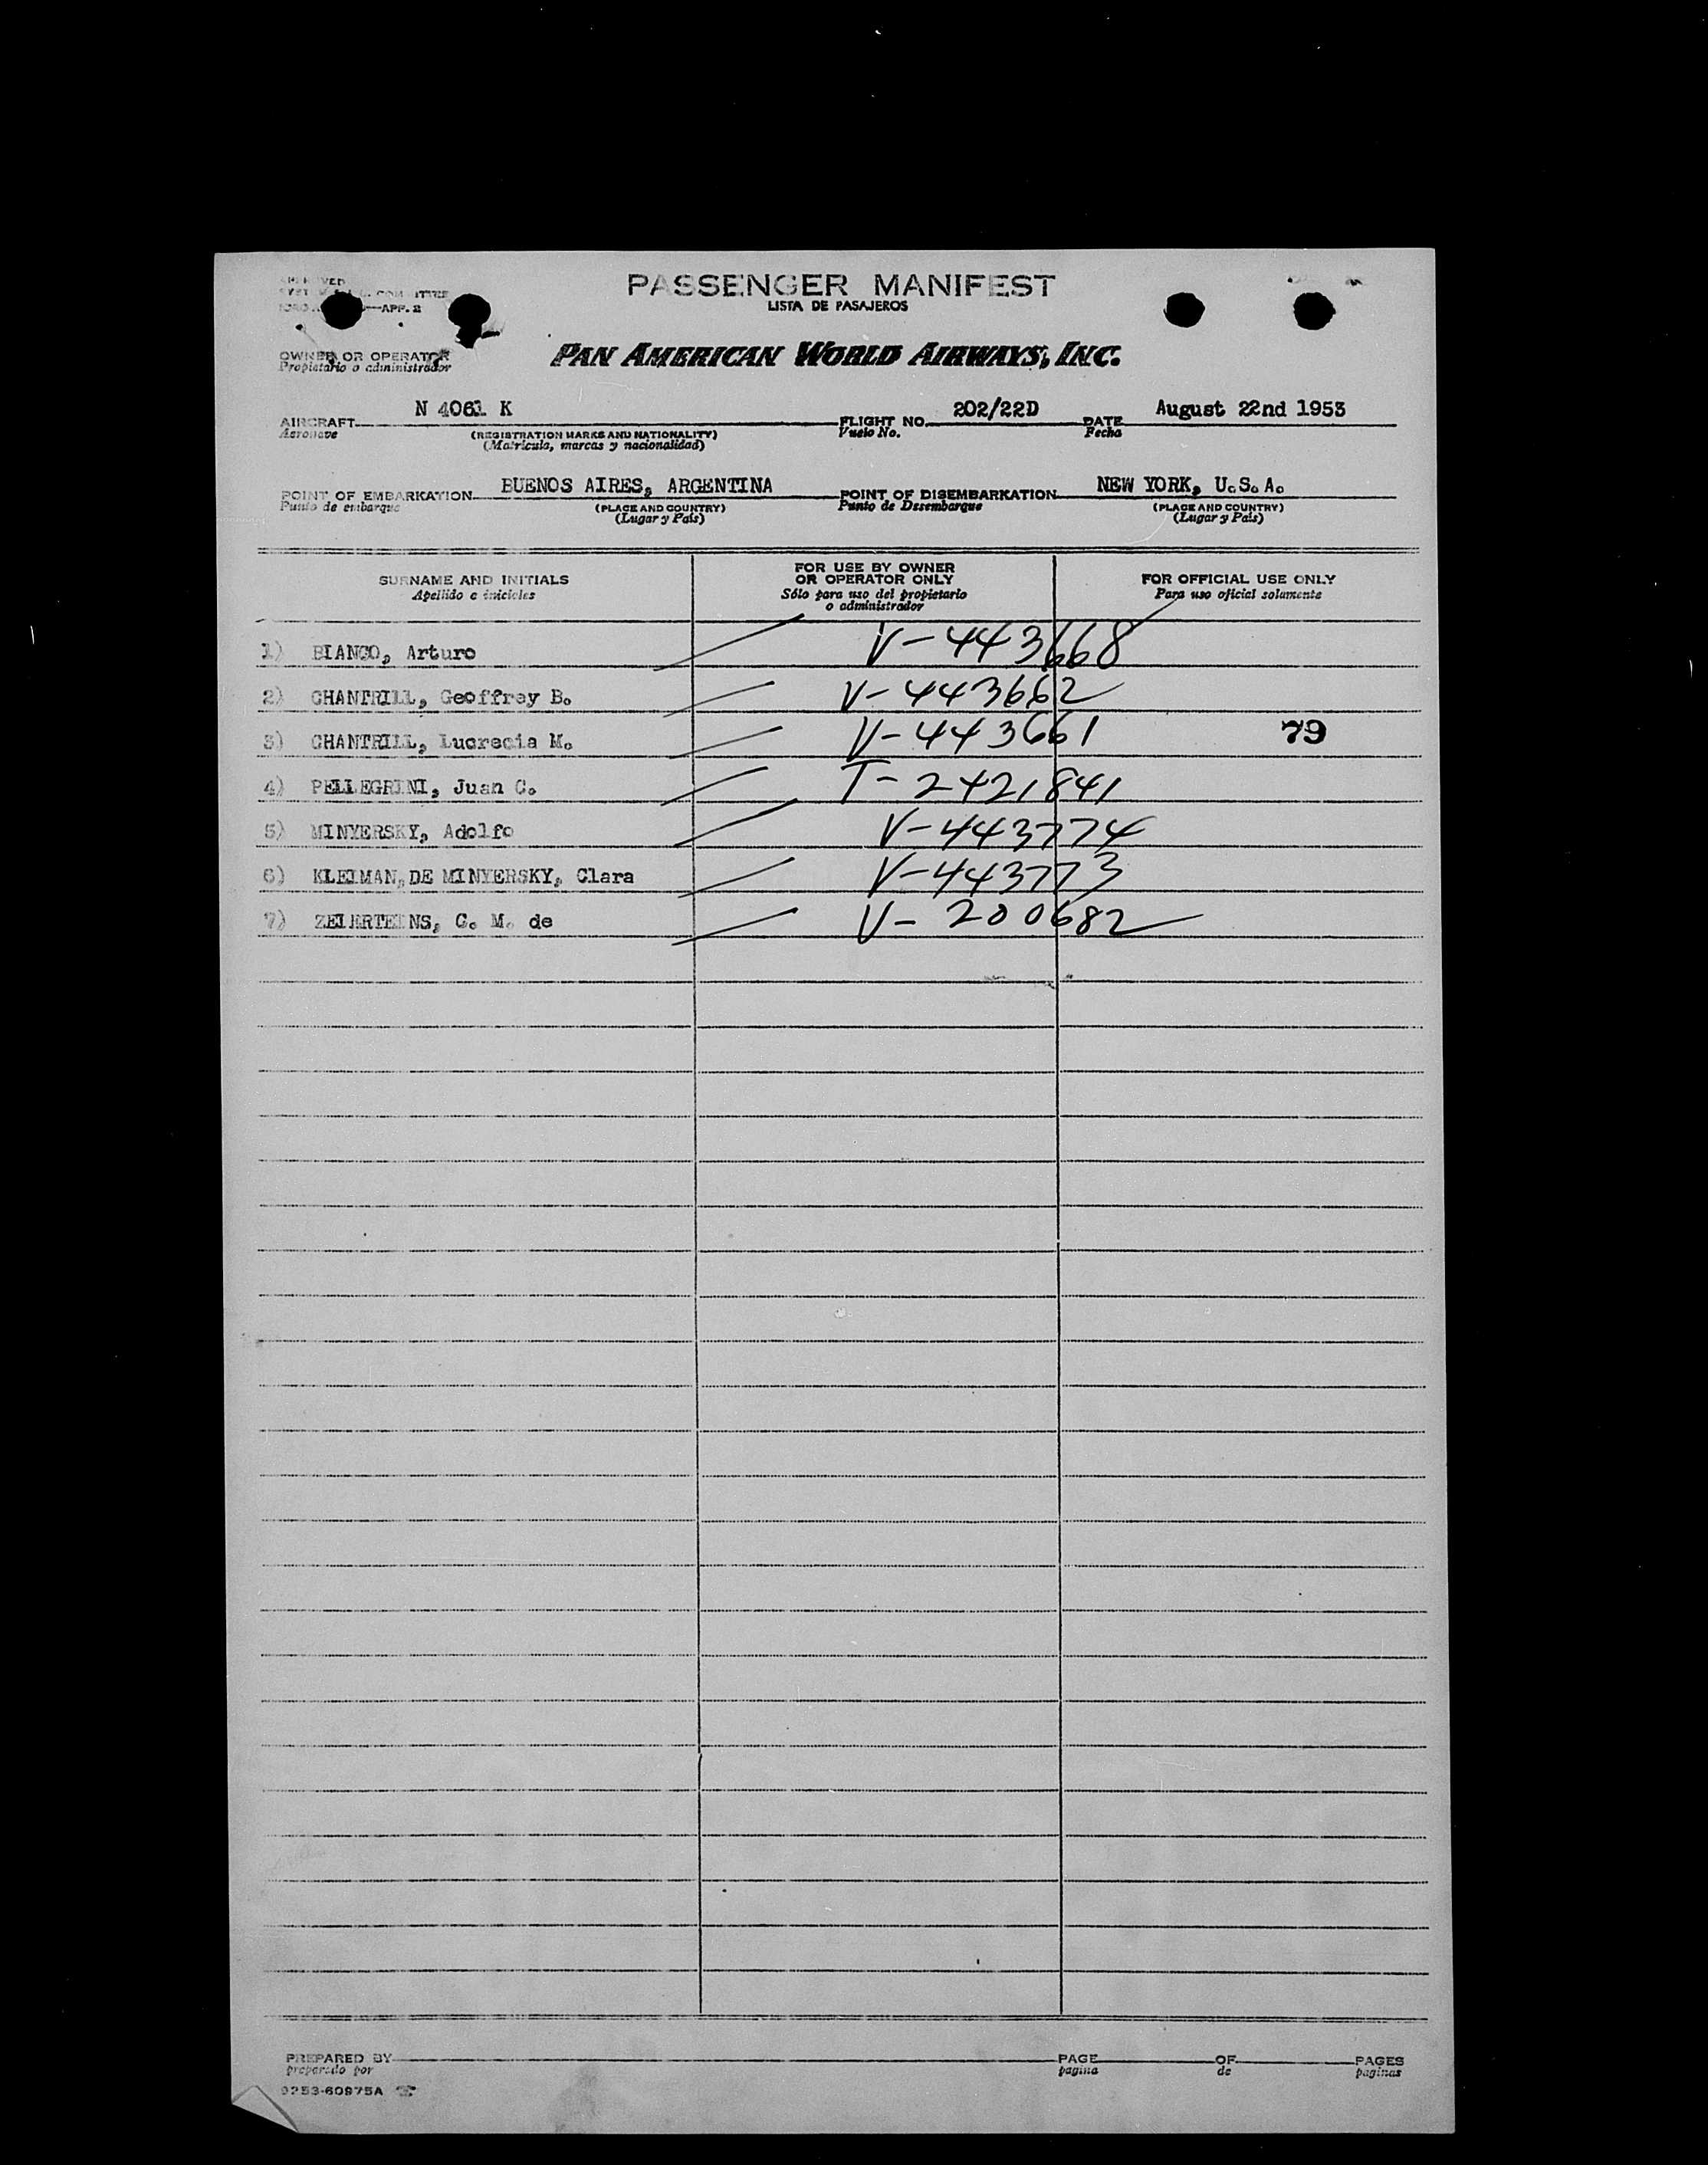 PASSENGER MANIFEST
LISTA DE PASAJEROS
APP. 2
OWNER OR OPERATOR
Propietario o administrador
PAN AMERICAN WORLD AIRWAYS, INC.
AIRCRAFT N 4061 K FLIGHT NO. 202/22D DATE August 22nd 1953
Aeronave (REGISTRATION MARKS AND NATIONALITY) Vuelo No. Fecha
(Matrícula, marcas y nacionalidad)
POINT OF EMBARKATION BUENOS AIRES, ARGENTINA POINT OF DISEMBARKATION NEW YORK, U.S.A.
Punto de embarque (PLACE AND COUNTRY) Punto de Desembarque (PLACE AND COUNTRY)
(Lugar y País) (Lugar y País)
SURNAME AND INITIALS FOR USE BY OWNER OR OPERATOR ONLY FOR OFFICIAL USE ONLY
Apellido e iniciales Sólo para uso del propietario o administrador Para uso oficial solamente
1) BIANCO, Arturo V-443668
2) CHANTRILL, Geoffrey B. V-443662
3) CHANTRILL, Lucrecia M. V-443661 79
4) PELLEGRINI, Juan C. T-2421841
5) MINYERSKY, Adolfo V-443774
6) KLEIMAN, DE MINYERSKY, Clara V-443773
7) C. M. de V-200682
PREPARED BY PAGE OF PAGES
preparado por pagina de paginas
9253-60975A